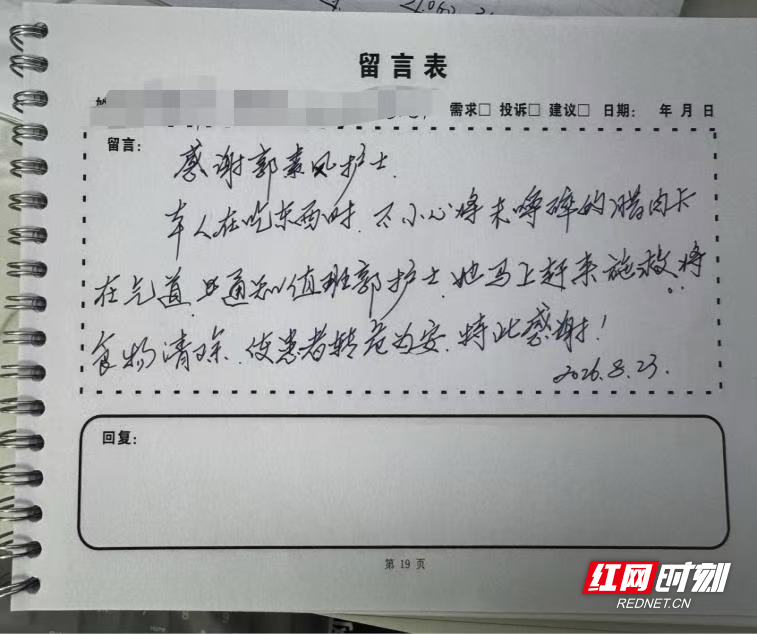 留言表
需求□ 投诉□ 建议□ 日期: 年 月 日
留言:
感谢郭素凤护士.
本人在吃东西时.不小心将未嚼碎的腊肉卡
在气道.通知值班郭护士.她马上赶来施救.将
食物清除.使患者转危为安.特此感谢!
2026.8.23.
回复:
第 19 页
红网时刻
REDNET.CN